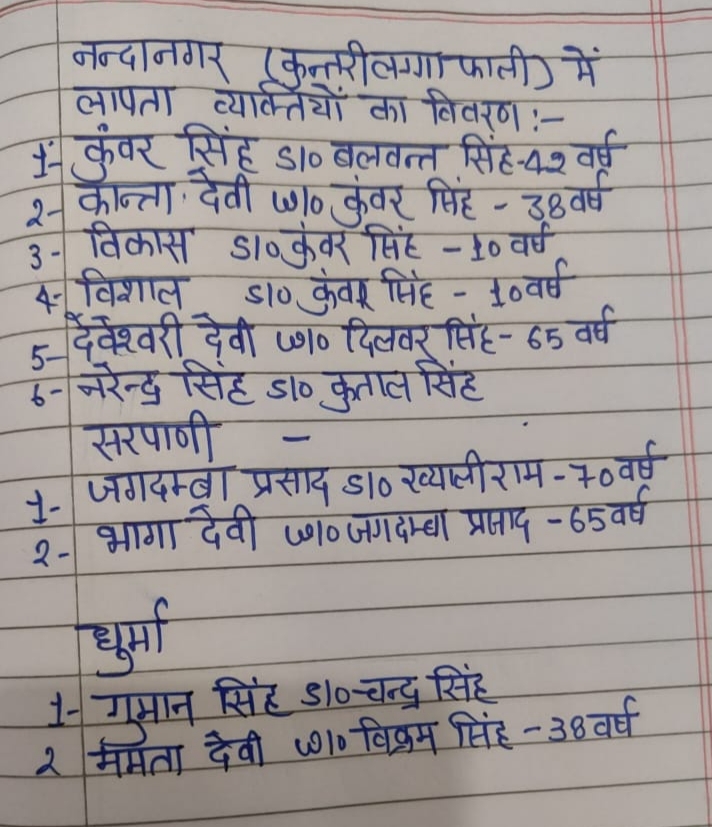 नन्दानगर (कुन्तरीलग्गा फाली) में
लापता व्यक्तियों का विवरण :-
1- कुंवर सिंह S/o बलवन्त सिंह-42 वर्ष
2- कान्ता देवी W/o कुंवर सिंह - 38 वर्ष
3- विकास S/o कुंवर सिंह - 10 वर्ष
4- विशाल S/o कुंवर सिंह - 10 वर्ष
5- देवेश्वरी देवी W/o दिलवर सिंह - 65 वर्ष
6- नरेन्द्र सिंह S/o कुताल सिंह
सरपाणी -
1- जगदम्बा प्रसाद S/o ख्यालीराम - 70 वर्ष
2- भागा देवी W/o जगदम्बा प्रसाद - 65 वर्ष
धुर्मा
1- गुमान सिंह S/o चन्द्र सिंह
2 ममता देवी W/o विक्रम सिंह - 38 वर्ष